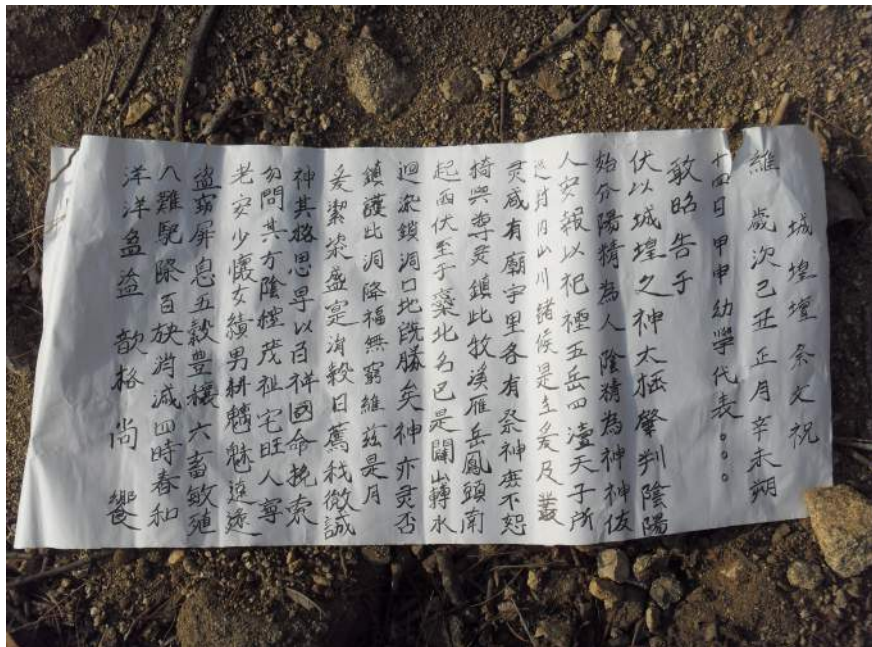 城隍壇祭文祝
維歲次己丑正月辛未朔
十四日甲申幼學代表。。。
敢昭告于
伏以城隍之神太極肇判陰陽
始分陽精為人陰精為神神依
人安報以祀禋五岳四瀆天子所
封內山川諸候是主爰及叢
灵咸有廟宇里各有祭神毋不恕
猗與尊灵鎮此牧溪雁岳鳳頭南
起西伏至于藥北名巴是闢山轉水
迴洞口地旣勝矣神亦灵否
鎮護此洞降福無窮維玆是月
爰潔粢盛寔涓穀日薦我微誠
神其格思畀以百祥國命挽索
勿問其方陰禋茂祉宅旺人寧
老安少懷女績男耕魑魅遠逐
盜竊屏息五穀豊穰六畜敏殖
八難馳除百殃消滅四時春和
洋洋盈盜歆格尚饗